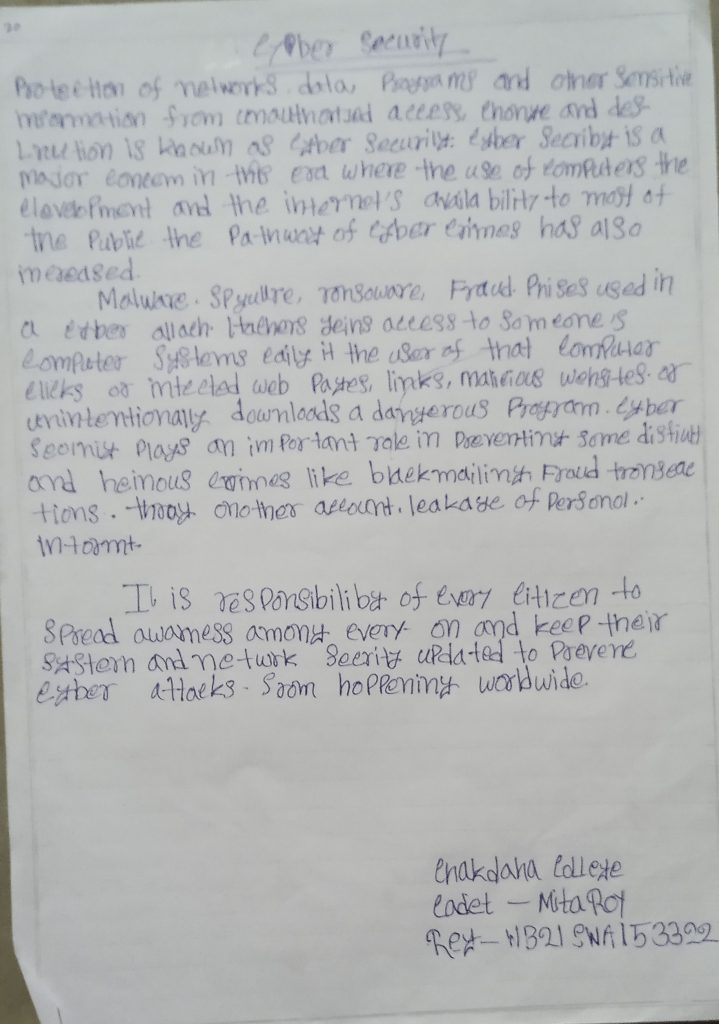 30
Cyber Security
Protection of networks, data, Programs and other Sensitive
information from unauthorised access, change and des-
truction is known as Cyber Security. Cyber Secribty is a
major concern in this era where the use of computers the
development and the internet's availa bility to most of
the Public the Pathway of Cyber Crimes has also
increased.
Malware. Spyware, ronsoware, Fraud. Phises used in
a cyber attach. Hachers geins access to Someone's
Computer Systems eaily it the user of that Computer
clicks on intected web Pages, links, malicious websites. or
unintentionally downloads a dangerous Program. Cyber
Plays an important role in Preventing some
and heinous crimes like blackmailing Fraud transeac
tions. another account. leakage of Personal.
It is responsibilibty of every Citizen to
Spread awarness among every on and keep their
System and netwrk Secrity updated to Prevene
Cyber attacks. from happening worldwide.
Chakdaha College
Cadet – Mita Roy
Reg – WB21SWA153392